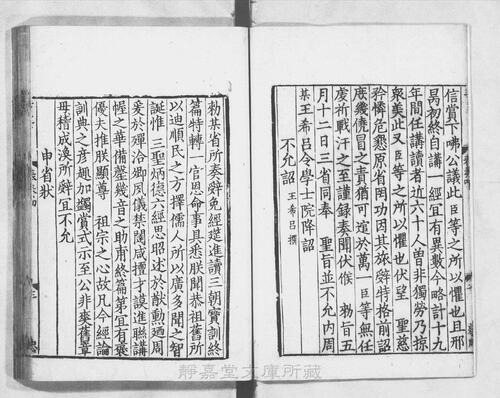 信賞下咈公議此臣等之所以懼也且邢
昺初終自講一經宜有異數今略計十九
年間任講讀者近六十人曽非獨勞乃掠
衆美此又臣等之所以懼也伏望 聖慈
矜憐危懇原省罔功因其控辭特格前詔
庶幾僥冒之責猶可逭於萬一臣等無任
虔祈戰汗之至謹録奏聞伏候 勑旨五
月十二日三省同奉 聖旨並不允内周
某王希吕令學士院降詔
不允詔 王希吕撰
勑某省所奏辭免經筵進讀三朝寳訓終
篇特轉一官恩命事具悉朕聞恭祖舊所
以迪順民之方擇儒人所以廣多聞之智
誕惟 三聖炳德六經思昭述於猷勲廼周
爰於殫洽卿風儀禁闥咸擅才謨進聯講
幄之華備罄幾音之助甫終篇第宜有襃
優夫推朕顯尊 祖宗之心故凡今經論
訓典之彦趣加蠲賞式示至公非來舊章
毋稽成渙所辭宜不允
申省狀
靜嘉堂文庫所藏